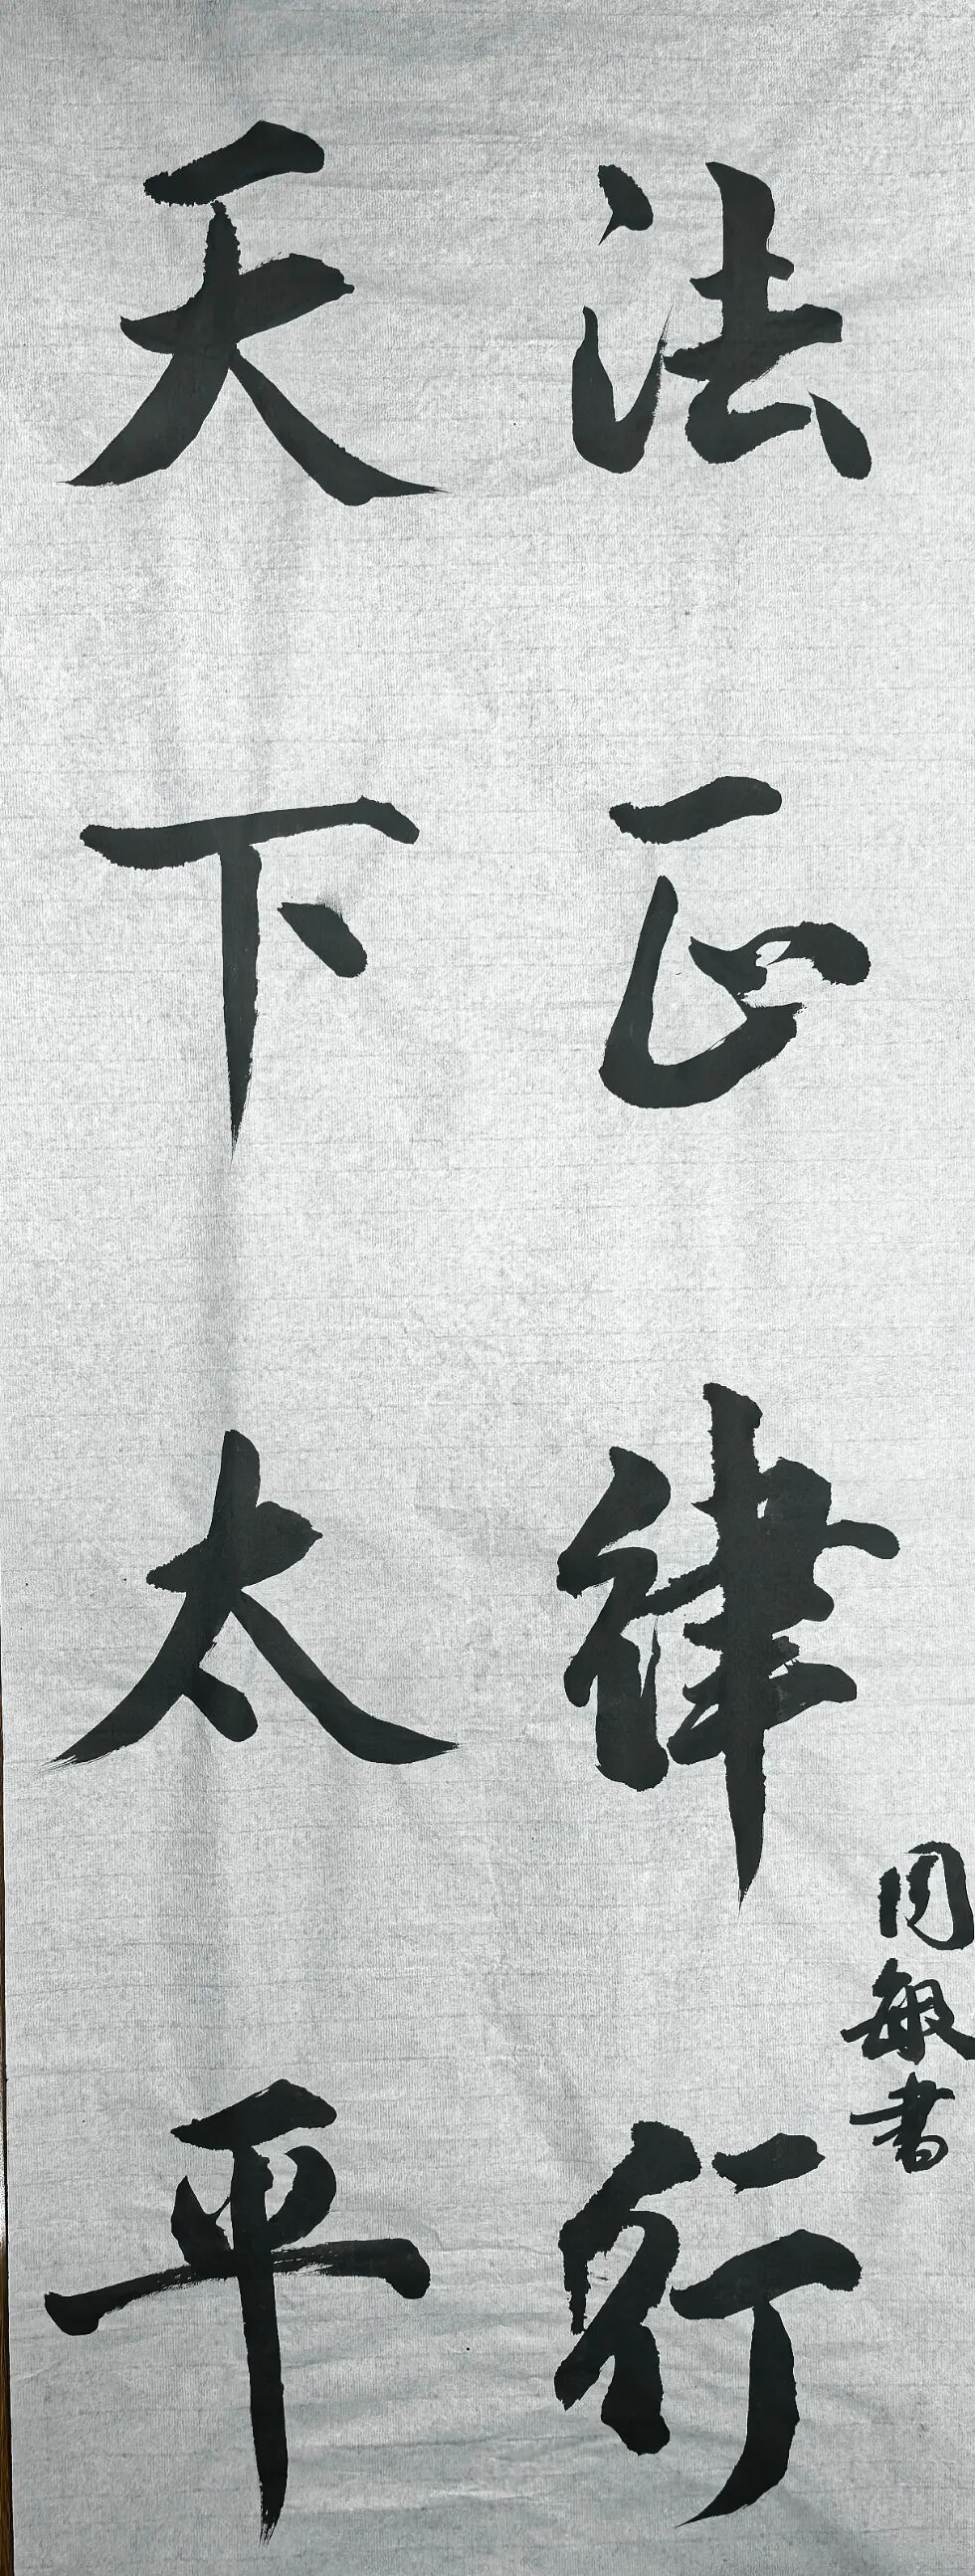 法正律行
天下太平
周敏书